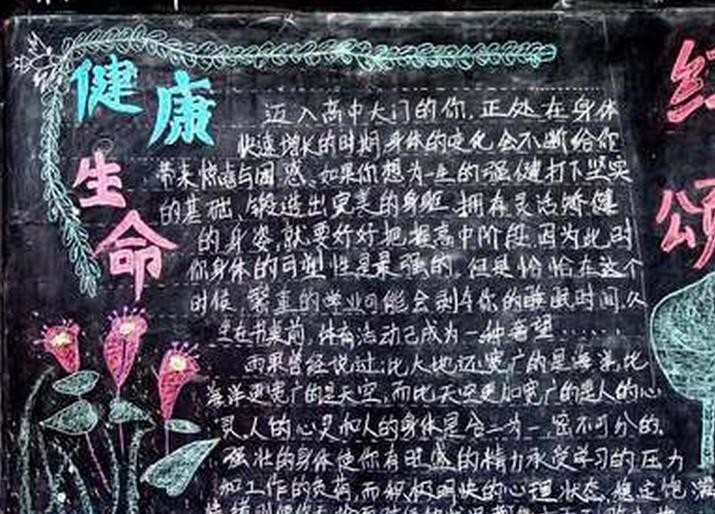 健康
生命
迈入高中大门的你，正处在身体
快速增长的时期身体的变化会不断给你
带来惊喜与困惑。如果你想为一生的强健打下坚实
的基础、锻造出完美的身躯 拥有灵活矫健
的身姿，就要好好把握高中阶段，因为此时
你身体的可塑性是最强的，但是恰恰在这个
时候 繁重的学业可能会剥夺你的睡眠时间，久
坐在书桌前，体育活动已成为一种奢望……
雨果曾经说过：比大地还宽广的是海洋，比
海洋更宽广的是天空，而比天空更加宽广的是人的心
灵，人的心灵和人的身体是合二为一，密不可分的。
强壮的身体使你有旺盛的精力承受学习的压力
和工作的负荷，而积极明快的心理状态，稳定饱满
红
颂